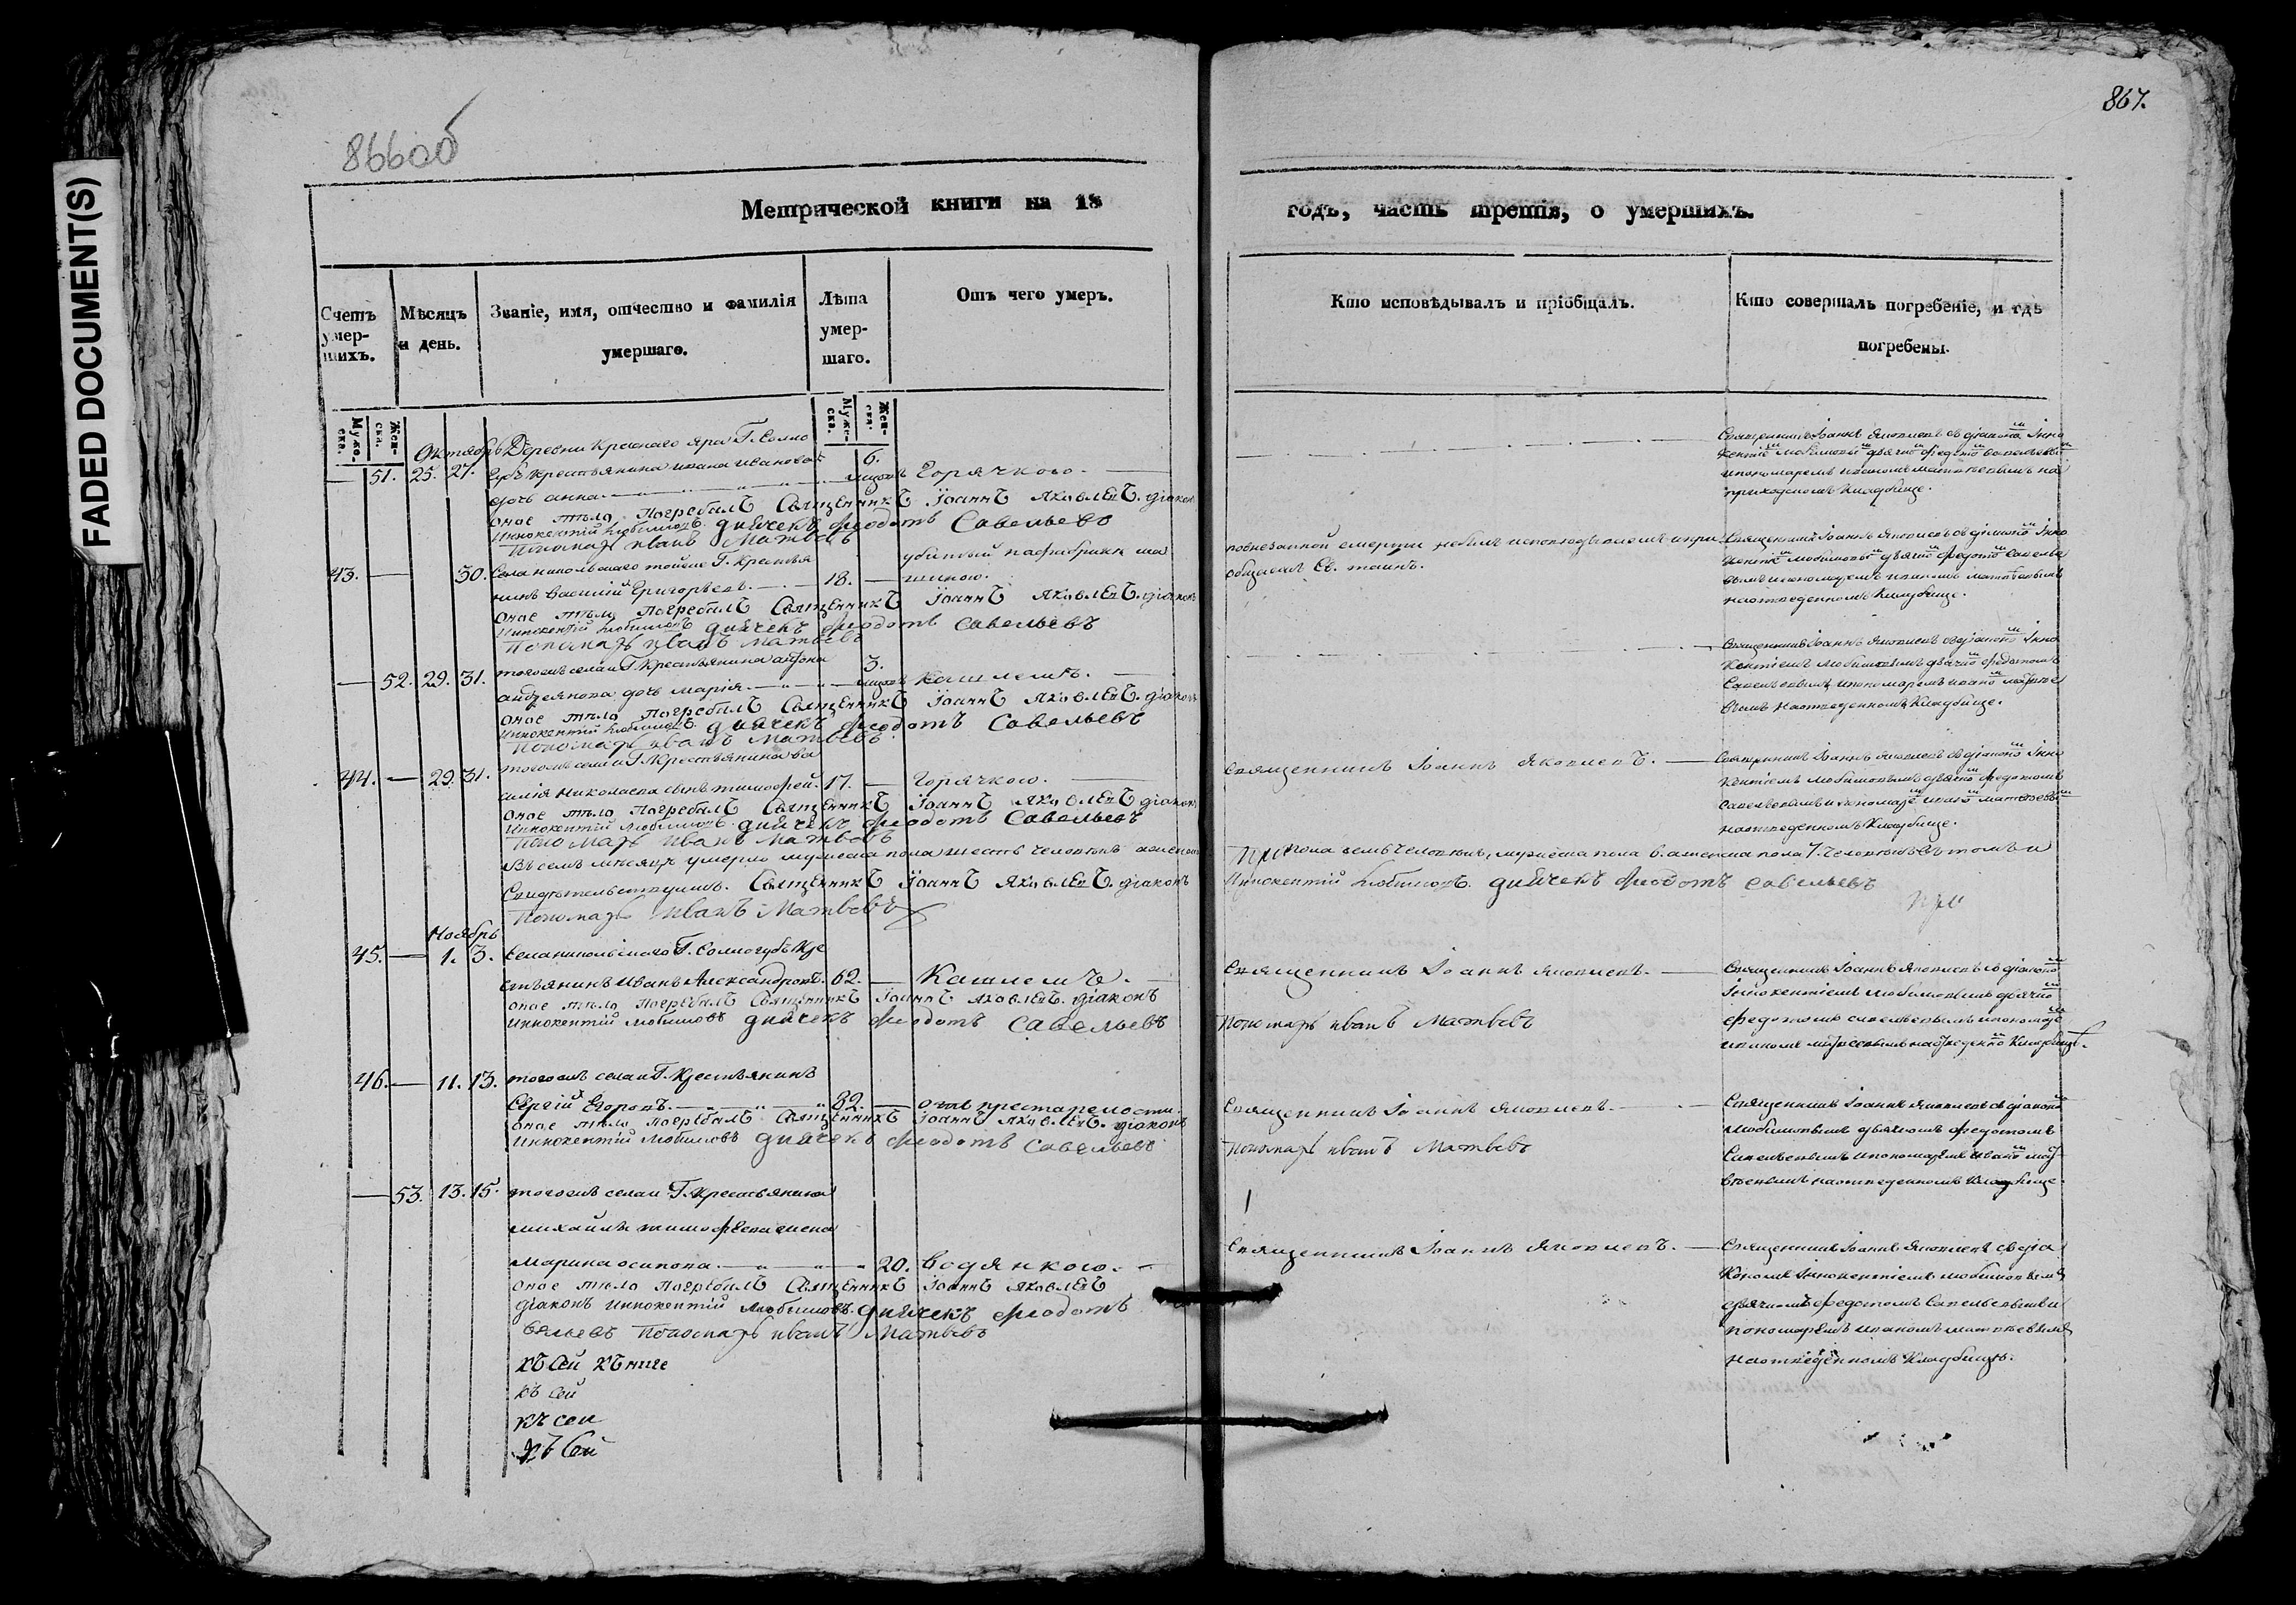 FADED DOCUMENT(S)
866об
867.
Метрической книги на 18
годъ, часть третія, о умершихъ.
Счетъ умер-шихъ.
Мѣсяцъ и день.
Званіе, имя, отчество и фамилія умершаго.
Лѣта умер-шаго.
Отъ чего умеръ.
Кто исповѣдывалъ и пріобщалъ.
Кто совершалъ погребеніе, и гдѣ погребены.
Муже-ска.
Жен-ска.
Муже-ска.
Жен-ска.
Октябрь Деревни Краснаго яра Г. Солло
— 51. 25. 27. губъ крестьянина ивана иванова 6.
дочь анна. Горячкою.
оное тѣло Погребалъ Священникъ Іоаннъ Яковлевъ. діаконъ
Иннокентій Любимовъ. дьячекъ Феодотъ Савельевъ
Пономарь иванъ Матвѣевъ
Священникъ Іоаннъ Яковлевъ съ діакономъ Інно
кентіемъ Любимовымъ дьячкомъ Федотомъ Савельевымъ
и пономаремъ иваномъ матвеевымъ на
приходскомъ кладбище.
убитый на фабрики ма
43. — 30. Села никольского тойже Г. Крестья
нинъ Василій Григорьевъ. 18. — шиною.
оное тѣло Погребалъ Священникъ Іоаннъ Яковлевъ. діаконъ
Иннокентій Любимовъ дьячекъ Феодотъ Савельевъ
Пономарь иванъ Матвѣевъ
по внезапной смерти небылъ исповѣдываемъ и при
общаемъ Св. таинъ.
Священникъ Іоаннъ Яковлевъ съ діакономъ Інно
кентіемъ Любимовымъ дьячкомъ Федотомъ Савелье
вымъ и пономаремъ иваномъ матвеевымъ
на отведенномъ Кладбище.
— 52. 29. 31. тогожъ села и Г. Крестьянина 3.
андреянова дочь марія. Кашлемъ.
оное тѣло Погребалъ Священникъ Іоаннъ Яковлевъ. діаконъ
Иннокентій Любимовъ. дьячекъ Феодотъ Савельевъ
Пономарь иванъ Матвѣевъ
Священникъ Іоаннъ Яковлевъ съ діакономъ Інно
кентіемъ Любимовымъ дьячкомъ Федотомъ
Савельевымъ и пономаремъ иваномъ матвее
вымъ на отведенномъ Кладбище.
44. — 29. 31. тогожъ села и Г. Крестьянина ва
силія Николаева сынъ тимофей. 17. — Горячкою.
оное тѣло Погребалъ Священникъ Іоаннъ Яковлевъ діаконъ
Иннокентій Любимовъ. дьячекъ Феодотъ Савельевъ
Пономарь иванъ Матвѣевъ
Священникъ Іоаннъ Яковлевъ.
Священникъ Іоаннъ Яковлевъ съ діакономъ Інно
кентіемъ Любимовымъ дьячкомъ Федотомъ
Савельевымъ и пономаремъ иваномъ матвеевымъ
на отведенномъ Кладбище.
Въ семъ мѣсяцѣ умерло мужеска пола шесть человѣкъ а женска
пола семь человѣкъ, мужеска пола 6. а женска пола 7. человѣкъ Въ томъ и
Свидѣтельствуемъ. Священникъ Іоаннъ Яковлевъ. діаконъ
Иннокентій Любимовъ. дьячекъ Феодотъ Савельевъ
Пономарь иванъ Матвѣевъ
Ноябрь
45. — 1. 3. Села никольского Г. Соллогубъ Кре
стьянинъ Иванъ Александровъ. 62. — Кашлемъ.
оное тѣло Погребалъ Священникъ Іоаннъ Яковлевъ. діаконъ
Иннокентій Любимовъ дьячекъ Феодотъ Савельевъ
Пономарь иванъ Матвѣевъ
Священникъ Іоаннъ Яковлевъ.
Священникъ Іоаннъ Яковлевъ съ діакономъ
Іннокентіемъ Любимовымъ дьячкомъ
Федотомъ Савельевымъ и пономаремъ
иваномъ матвеевымъ на отведенномъ Кладбище.
46. — 11. 13. тогожъ села и Г. Крестьянинъ
Сергій Егоровъ. 82. — отъ престарелости.
оное тѣло Погребалъ Священникъ Іоаннъ Яковлевъ. діаконъ
Иннокентій Любимовъ дьячекъ Феодотъ Савельевъ
Пономарь иванъ Матвѣевъ
Священникъ Іоаннъ Яковлевъ.
Священникъ Іоаннъ Яковлевъ съ діакономъ
Любимовымъ дьячкомъ Федотомъ
Савельевымъ и пономаремъ иваномъ мат
веевымъ на отведенномъ Кладбище.
— 53. 13. 15. тогожъ села и Г. Крестьянина
михайлы тимофеева жена
марина осипова. 20. водянкою.
оное тѣло Погребалъ Священникъ Іоаннъ Яковлевъ
діаконъ Иннокентій Любимовъ. дьячекъ Феодотъ
вельевъ Пономарь иванъ Матвѣевъ
Священникъ Іоаннъ Яковлевъ.
Священникъ Іоаннъ Яковлевъ съ діа
кономъ Іннокентіемъ Любимовымъ
дьячкомъ Федотомъ Савельевымъ и
пономаремъ иваномъ матвеевымъ
на отведенномъ Кладбищѣ.
къ сей къниге
къ сей
къ сеи
къ сей